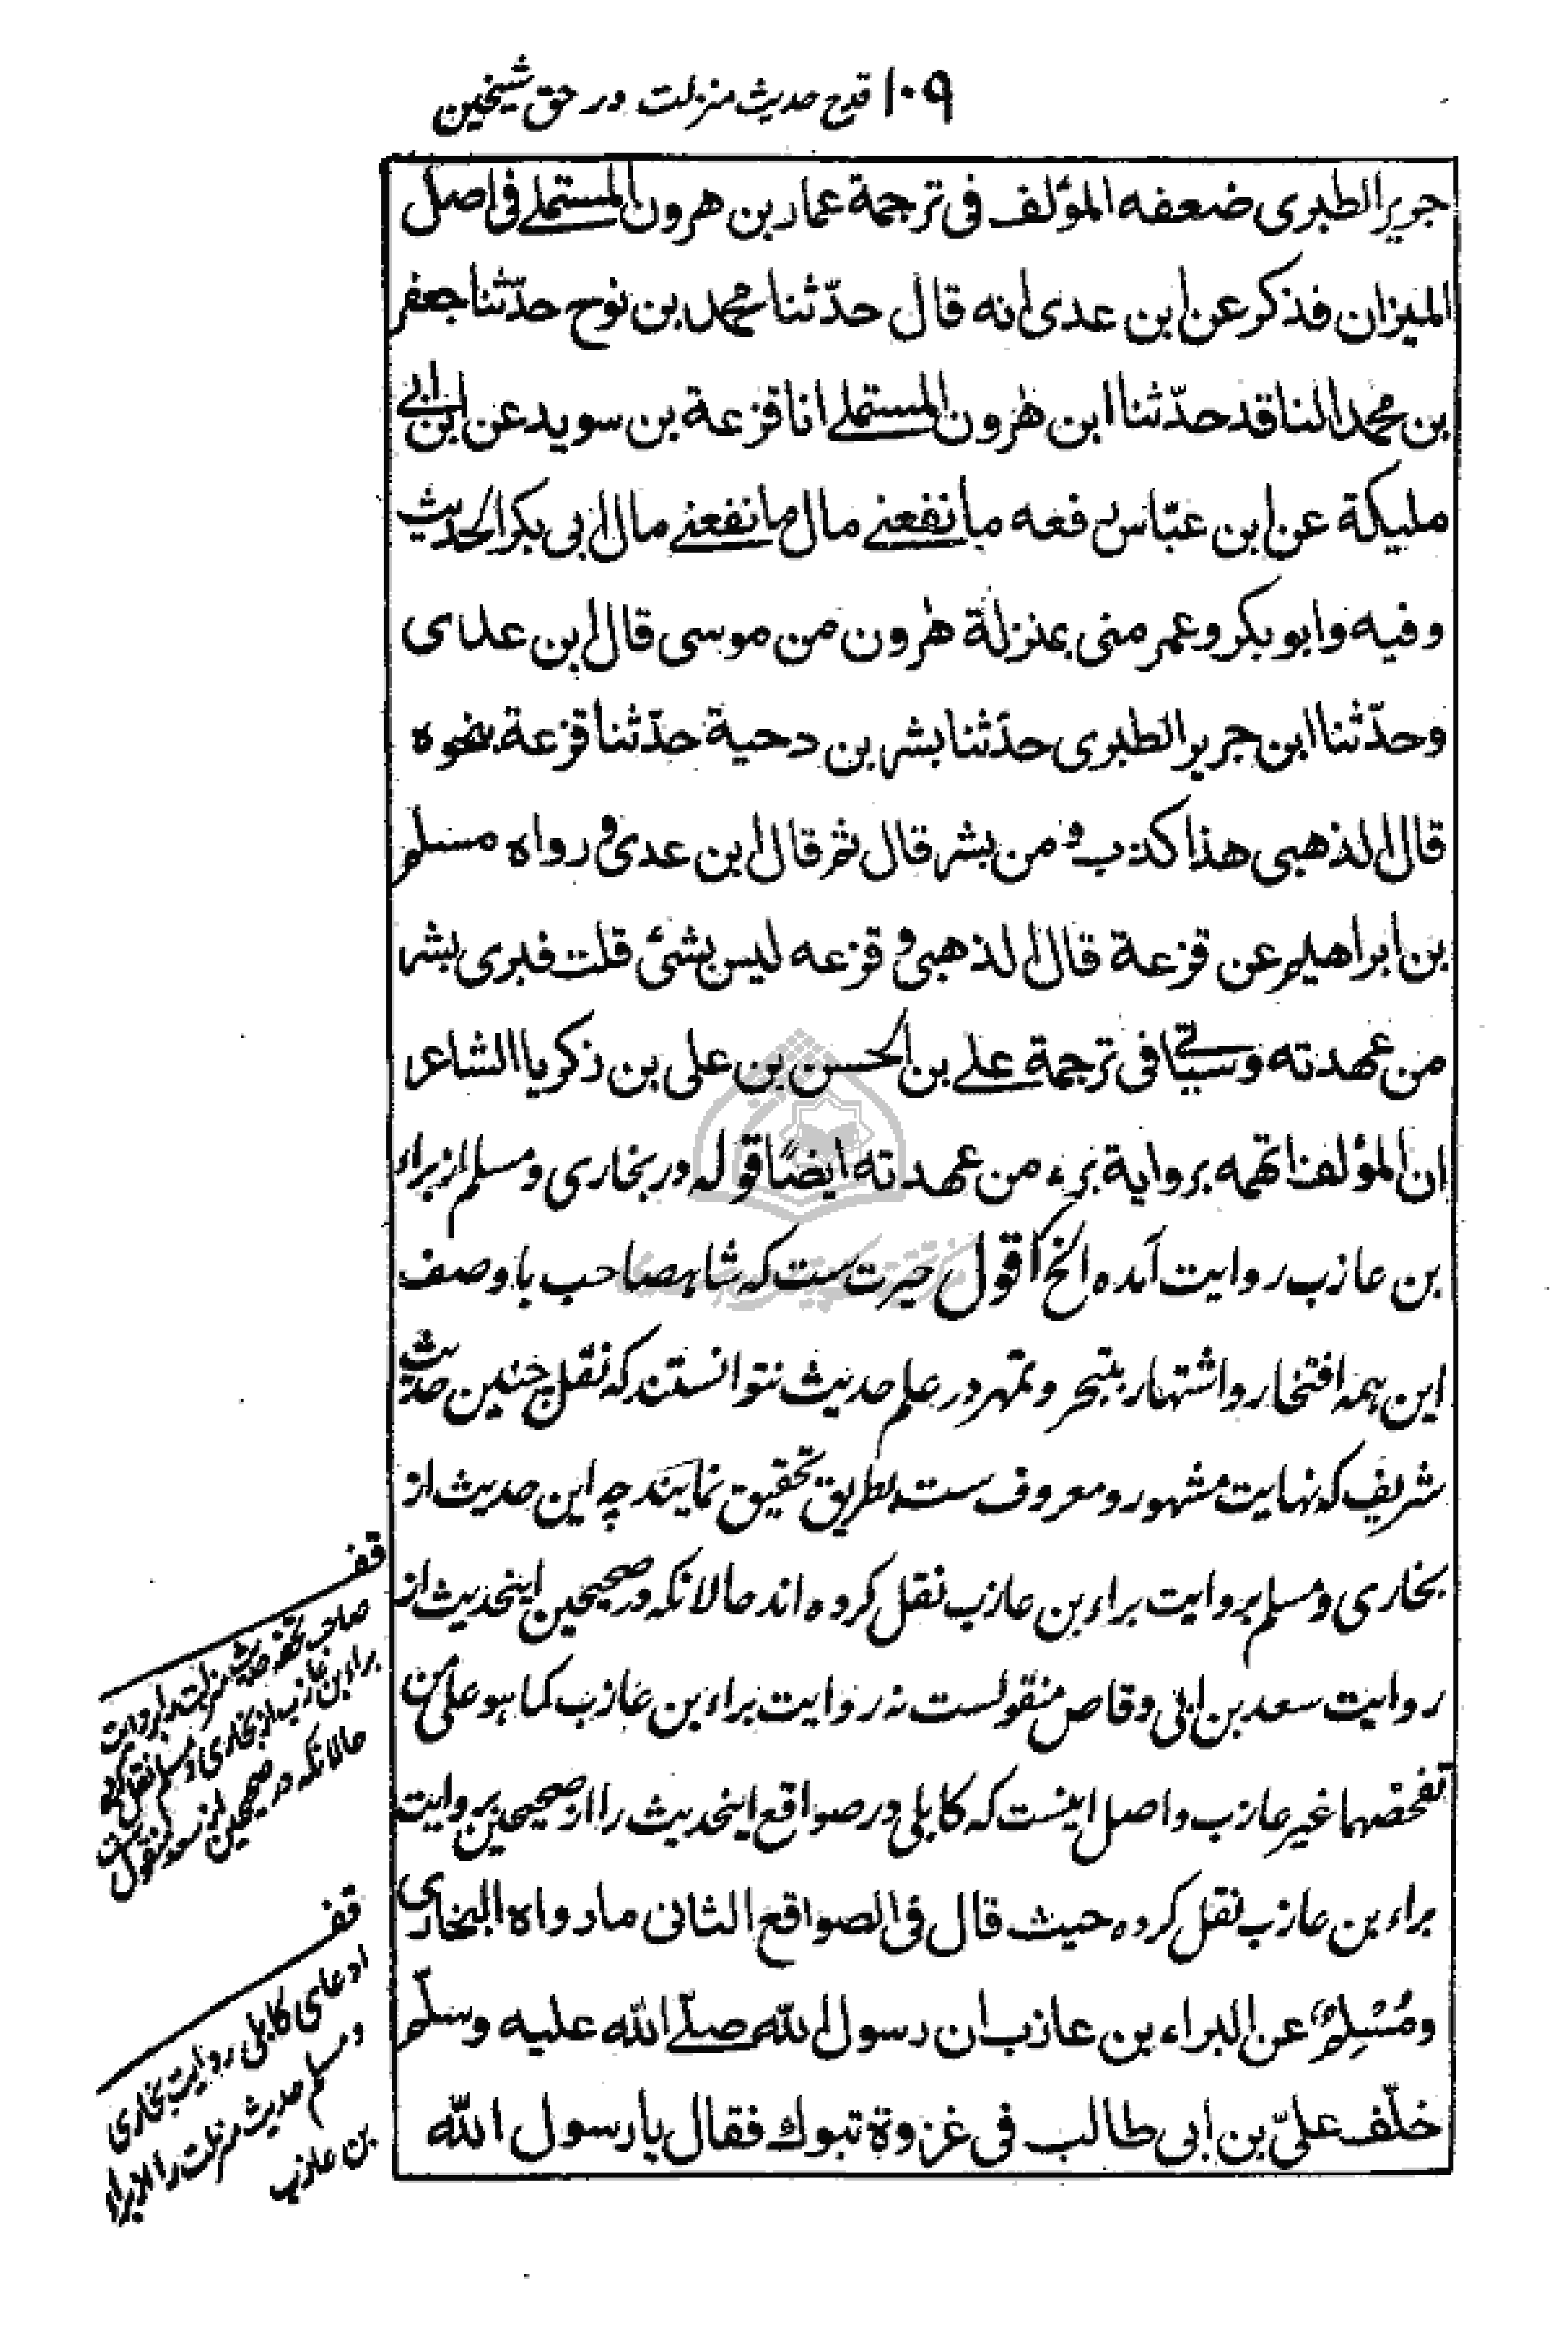 ۱۰۹ قدح حدیث منزلت در حق شیخین
جریر الطبری ضعفه المؤلف فی ترجمة عمار بن هرون المستملے فی اصل
المیزان فذکر عن ابن عدی انه قال حدّثنا محمد بن نوح حدّثنا جعفر
بن محمد الناقد حدّثنا ابن هرون المستملے انا قزعة بن سوید عن ابن ابے
ملیکة عن ابن عبّاس رفعه ما نفعنے مال ما نفعنے مال ابی بکر الحدیث
وفیه وابو بکر وعمر منی بمنزلة هرون من موسی قال ابن عدی
وحدّثنا ابن جریر الطبری حدّثنا بشر بن دحیة حدّثنا قزعة بنحوه
قال الذهبی هذا کذب ومن بشر قال ثم قال ابن عدی ورواه مسلم
بن ابراهیم عن قزعة قال الذهبی وقزعه لیس بشئ قلت فبری بشر
من عهدته وسیاتے فی ترجمة علے بن الحسن بن علی بن زکریا الشاعر
ان المؤلف اتهمه بروایة برء من عهدته ایضًا قوله در بخاری و مسلم از براء
بن عازب روایت آمده الخ اقول حیرت ست که شاهصاحب با وصف
این همه افتخار و اشتهار بتبحر و تمهر در علم حدیث نتوانستند که نقل چنین حدیث
شریف که نهایت مشهور و معروف ست بطریق تحقیق نمایند چه این حدیث از
بخاری و مسلم بروایت براء بن عازب نقل کرده اند حالانکه در صحیحین اینحدیث از
روایت سعد بن ابی وقاص منقولست نه روایت براء بن عازب کما هو علی من
تفحصهما غیر عازب و اصل اینست که کابلی در صواقع اینحدیث را از صحیحین بروایت
براء بن عازب نقل کرده حیث قال فی الصواقع الثانی ما رواه البخاری
ومُسْلِمٌ عن البراء بن عازب ان رسول الله صلّے الله علیه وسلّم
خلّف علیّ بن ابی طالب فی غزوة تبوك فقال یا رسول الله
قف
صاحب تحفه حدیث منزلت را بروایت
براء بن عازب از بخاری و مسلم نقل کرده
حالانکه در صحیحین از سعد منقول
قف
ادعای کابلی روایت بخاری
و مسلم حدیث منزلت را از براء
بن عازب